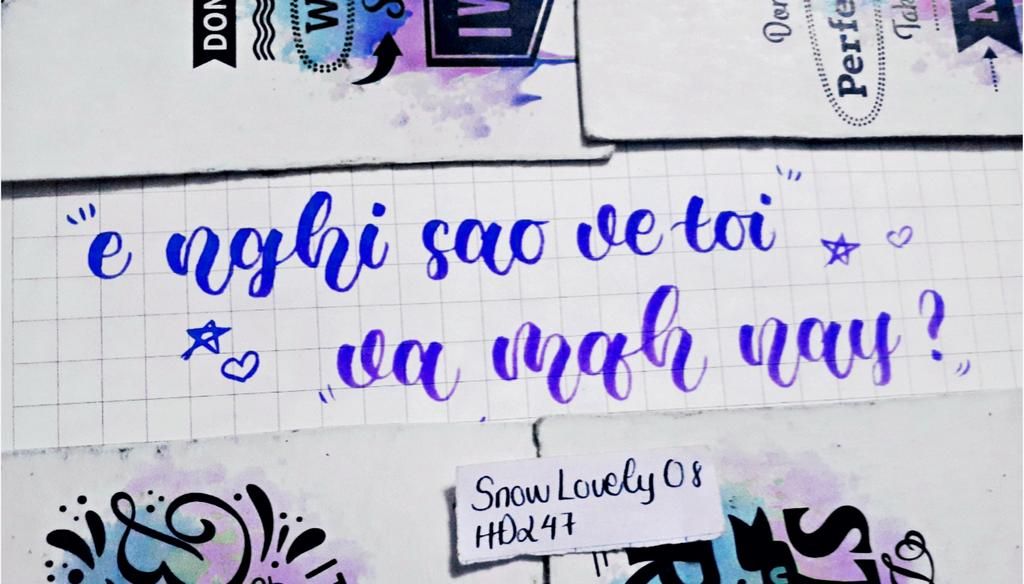 DON
W
S
IV
Don
Perfe
Tak
N
"e nghi sao ve toi"
"va mqh nay?"
Snow Lovely 08
HD247